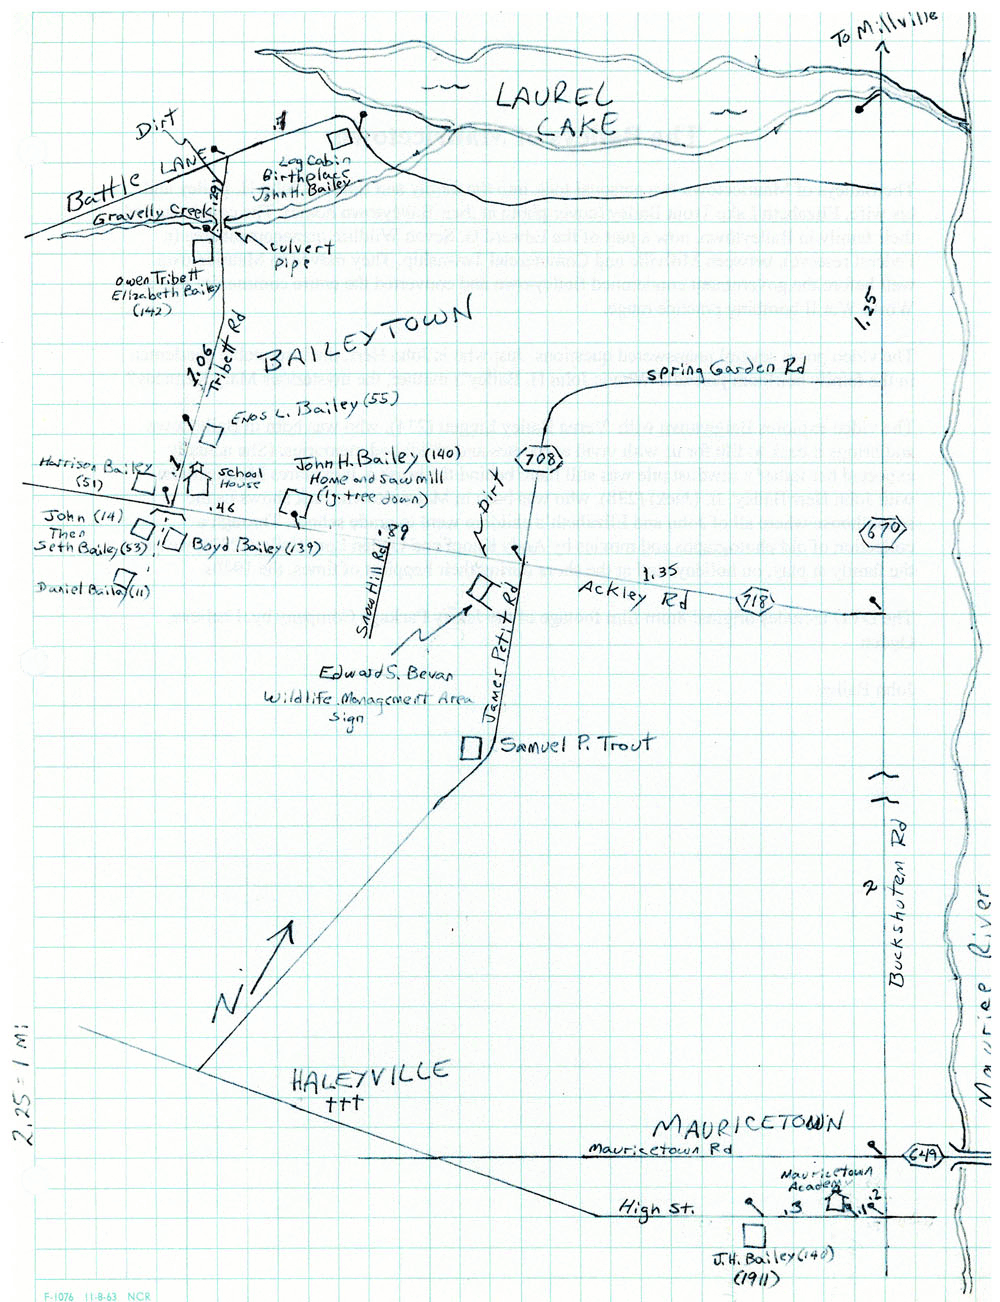 To Millville
LAUREL
LAKE
Dirt
.7
Battle LANE
Log Cabin
Birthplace
John H. Bailey
.29
Gravelly Creek
culvert
pipe
Owen Tribett
Elizabeth Bailey
(142)
1.25
BAILEYTOWN
1.06
Tribett Rd
Spring Garden Rd
Enos L. Bailey (55)
708
Harrison Bailey
(51)
.1
School
House
John H. Bailey (140)
Home and sawmill
(lg. tree down)
Dirt
.46
John (14)
Then
Seth Bailey (53)
Boyd Bailey (139)
.89
670
Daniel Baily (11)
Snow Hill Rd
1.35
Ackley Rd
718
James Petit Rd
Edward S. Bevan
Wildlife Management Area
Sign
Samuel P. Trout
2
Buckshutem Rd
Maurice River
N
2.25 = 1 mi
HALEYVILLE
MAURICETOWN
Mauricetown Rd
649
Mauricetown
Academy
High St.
.3
.1
.2
J.H. Bailey (140)
(1911)
F-1076 11-8-63 NCR